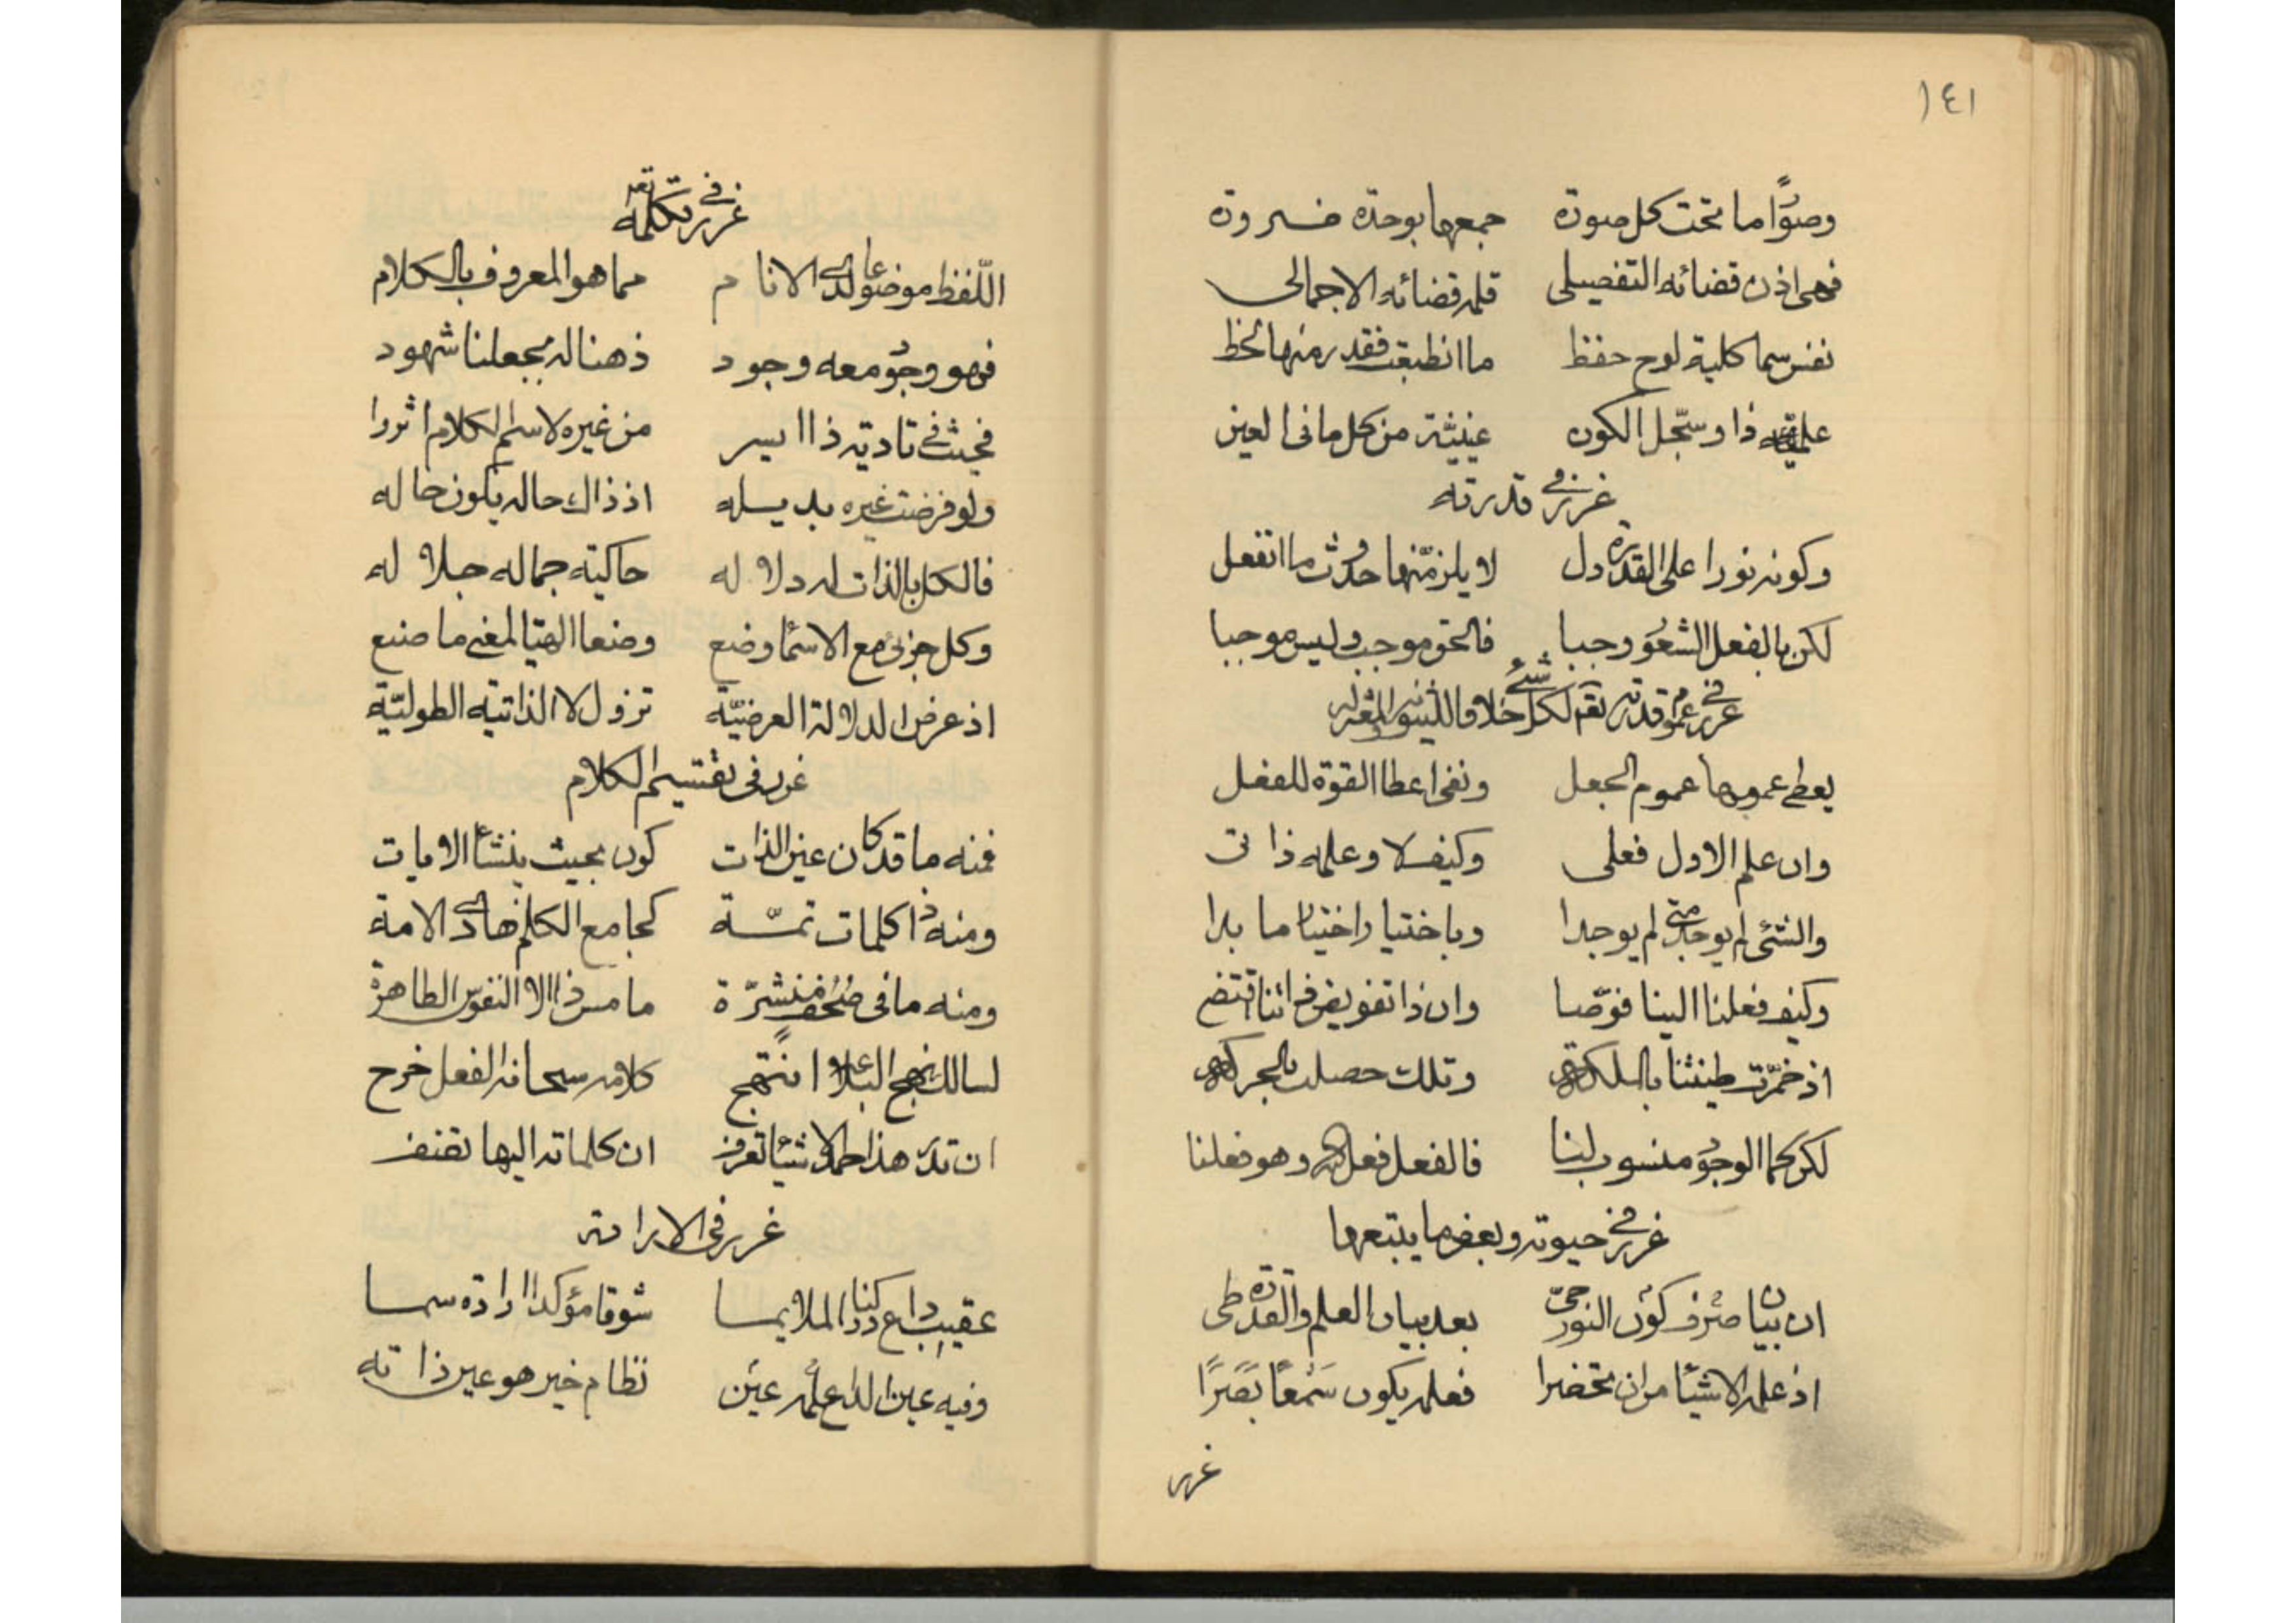 ١٤١
وصورا ما تحت كل صورة جمعها بوحدة ضرورة
فهى اذن قضائه التفصيلى قلم قضائه الاجمالى
نفس سما كلية لوح حفظ ما انطبعت فقدر منها لحظ
علمية ذا وسجل الكون عينية من كل ما فى العين
غرر فى قدرته
وكونه نورا على القدرة دل لا يلزمنها حدوث ما انفعل
لكن بالفعل الشعور وجبا فالحق موجب وليس موجبا
غرر فى عموم قدرته تعالى لكل شىء خلافا للثنوية والمعتزلة
يعطى عمومها عموم الجعل ونفى اعطا القوة للفعل
وان علم الاول فعلى وكيف لا وعلمه ذاتى
والشئ لم يوجد متى لم يوجدا وباختيار اختيار ما بدا
وكيف فعلنا الينا فوضا وان ذا تفويض ذاتنا اقتضى
اذ خمرت طينتنا بالملكة وتلك حصلت بالحركة
لكن كما الوجود منسوب لنا فالفعل فعل الله وهو فعلنا
غرر فى حيوته وبعض ما يتبعها
ان بيان صرف كون النور حى بعد بيان العلم والقدرة طى
اذ علمه الاشياء من ان تحضرا فعلمه يكون سَمْعًا بَصَرًا
غرر
غرر فى تكلمه تعالى
اللفظ موضوعا لدى الانام مما هو المعروف بالكلام
فهو وجود معه وجود ذهنا له بجعلنا شهود
فحيث فى تادية ذا ايسر من غيره لاسم الكلام اثروا
ولو فرضت غيره بديله اذ ذاك حاله يكون حاله
فالكل بالذات له دلاله حاكية جماله جلاله
وكل جزئى مع الاسما وضع وضعا الهيا لمعنى ما صنع
اذ عرض الدلالة العرضيّة تزول لا الذاتية الطوليّة
غرر فى تقسيم الكلام
فمنه ما قد كان عين الذات كون بحيث ينشأ الايات
ومنه ذا كلمات تمّة كجامع الكلم هادى الامة
ومنه ما فى صحف منشرّة ما مس ذا الا النفوس الطاهرة
لسالك نهج البلاغة انتهج كلامه سبحانه الفعل خرج
ان تدر هذا حمد الاشيا تعرف ان كلماته اليها تضف
غرر فى الارادة
عقيب داع دركنا الملايما شوقا مؤكدا ارادة سما
وفيه عين الداع عين علمه نظام خير هو عين ذاته